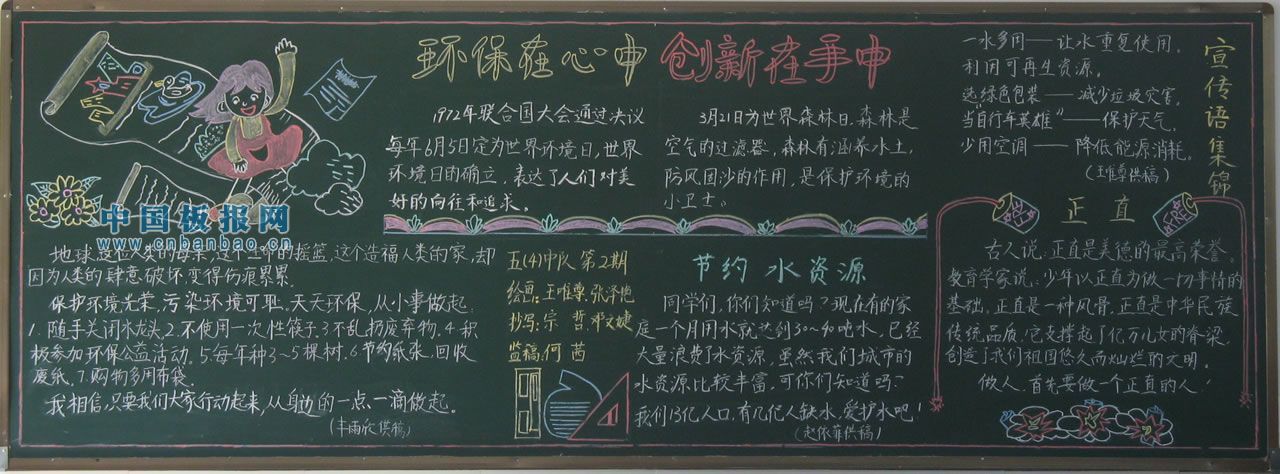 环保在心中 创新在手中
1972年联合国大会通过决议
每年6月5日定为世界环境日,世界
环境日的确立,表达了人们对美
好的向往和追求。
3月21日为世界森林日.森林是
空气的过滤器,森林有涵养水土,
防风固沙的作用,是保护环境的
小卫士。
宣传语集锦
一水多用——让水重复使用。
利用可再生资源。
选绿色包装——减少垃圾灾害。
当自行车英雄”——保护天气。
少用空调——降低能源消耗。
中国板报网
www.cnbanbao.cn
地球,这位人类的母亲,这个生命的摇篮,这个造福人类的家,却
因为人类的肆意破坏,变得伤痕累累。
保护环境光荣,污染环境可耻。天天环保,从小事做起:
1.随手关闭水龙头.2.不使用一次性筷子.3.不乱扔废弃物.4.积
极参加环保公益活动.5.每年种3~5棵树.6.节约纸张,回收
废纸.7.购物多用布袋.
我相信,只要我们大家行动起来,从身边的一点一滴做起。
五(4)中队第2期
绘画:王唯尊.张泽艳
抄写:宗 哲.
监稿:何 茜
节约水资源
同学们,你们知道吗?现在有的家
庭一个月用水就达到30~40吨水,已经
大量浪费了水资源,虽然我们城市的
水资源比较丰富,可你们知道吗?
我们13亿人口,有几亿人缺水,爱护水吧!
(赵依菲供稿)
正直
古人说:正直是美德的最高荣誉。
教育学家说:少年以正直为做一切事情的
基础。正直是一种风骨,正直是中华民族
传统品质,它支撑起了亿万儿女的脊梁,
创造了我们祖国悠久而灿烂的文明。
做人,首先要做一个正直的人!